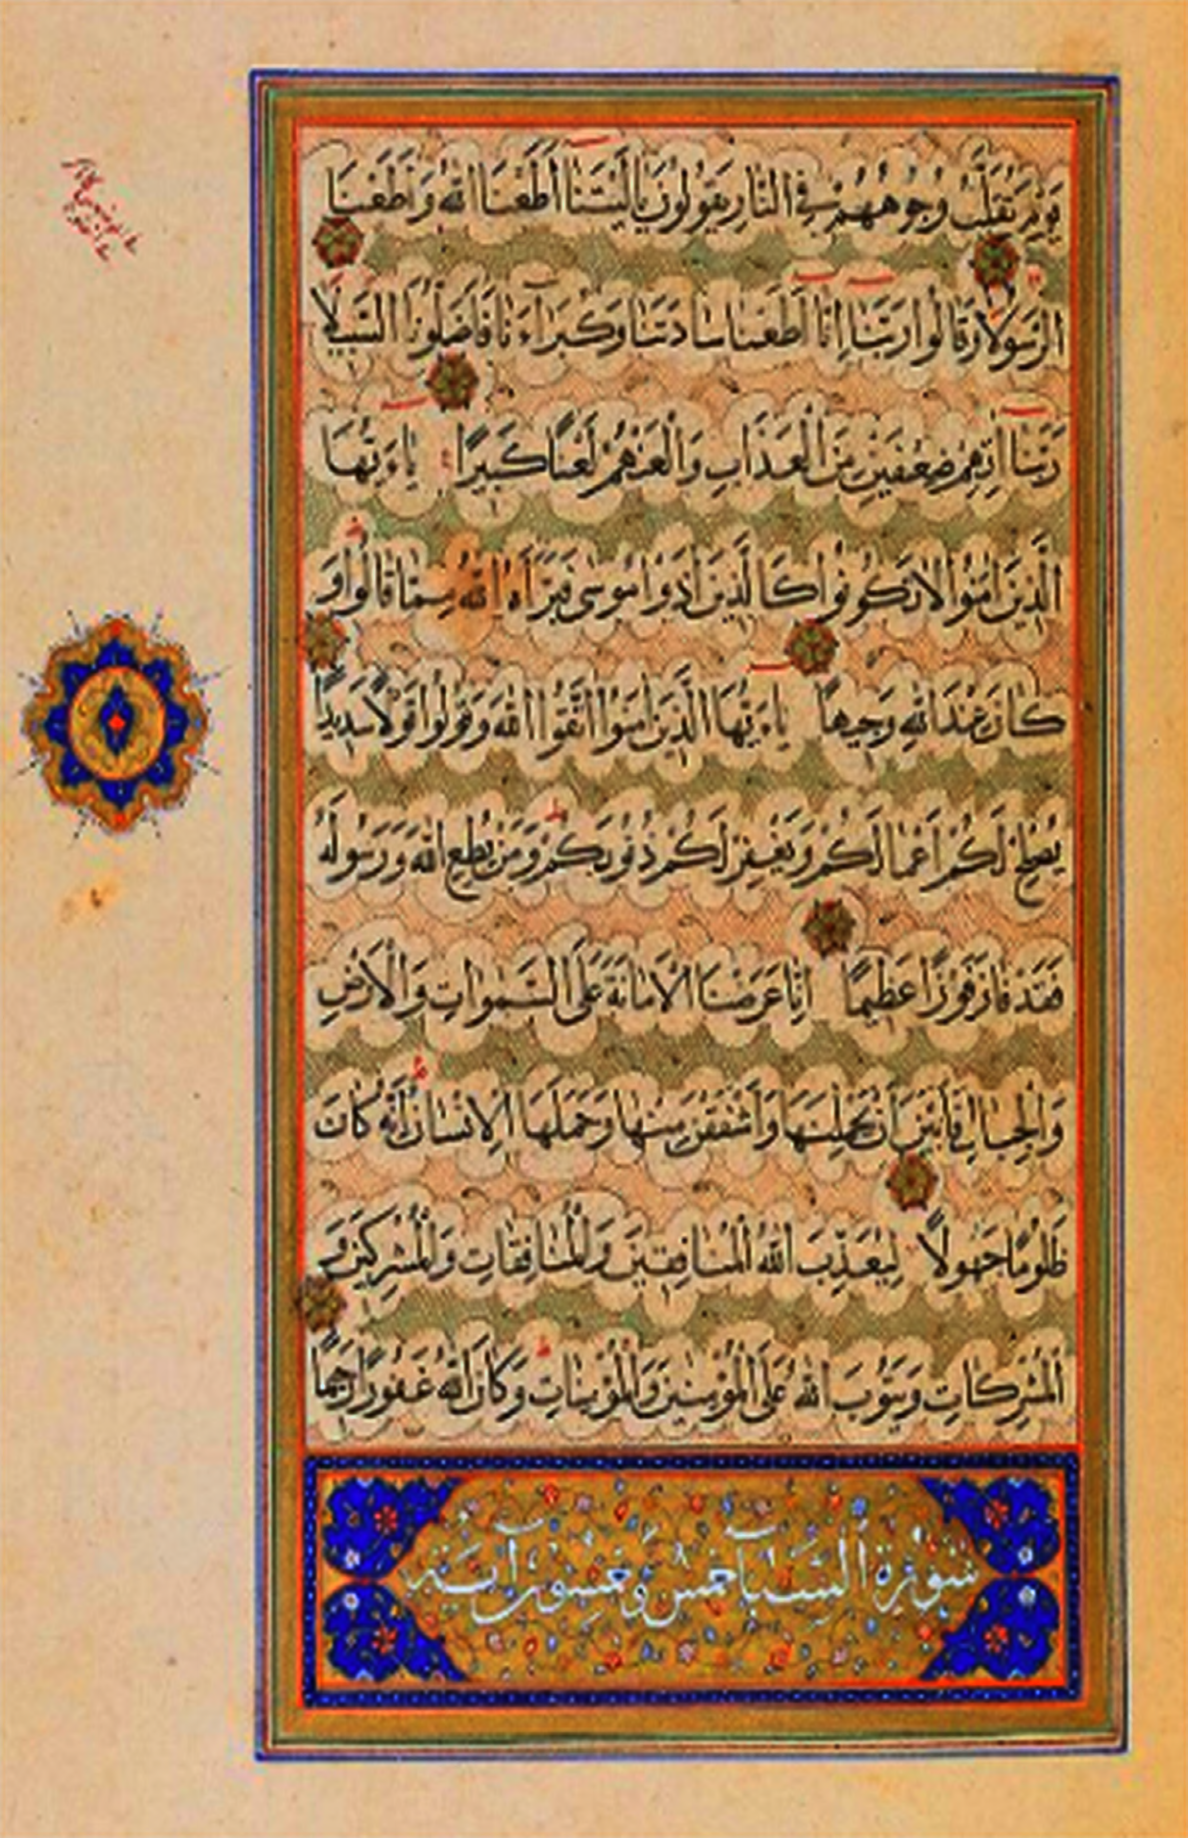 يَوْمَ تُقَلَّبُ وُجُوهُهُمْ فِي النَّارِ يَقُولُونَ يَا لَيْتَنَا أَطَعْنَا اللَّهَ وَأَطَعْنَا
الرَّسُولَا وَقَالُوا رَبَّنَا إِنَّا أَطَعْنَا سَادَتَنَا وَكُبَرَاءَنَا فَأَضَلُّونَا السَّبِيلَا
رَبَّنَا اٰتِهِمْ ضِعْفَيْنِ مِنَ الْعَذَابِ وَالْعَنْهُمْ لَعْنًا كَبِيرًا يَاءَيُّهَا
الَّذِينَ اٰمَنُوا لَا تَكُونُوا كَالَّذِينَ اٰذَوْا مُوسَى فَبَرَّأَهُ اللَّهُ مِمَّا قَالُوا وَ
كَانَ عِنْدَ اللَّهِ وَجِيهًا يَاءَيُّهَا الَّذِينَ اٰمَنُوا اتَّقُوا اللَّهَ وَقُولُوا قَوْلًا سَدِيدًا
يُصْلِحْ لَكُمْ أَعْمَالَكُمْ وَيَغْفِرْ لَكُمْ ذُنُوبَكُمْ وَمَنْ يُطِعِ اللَّهَ وَرَسُولَهُ
فَقَدْ فَازَ فَوْزًا عَظِيمًا إِنَّا عَرَضْنَا الْأَمَانَةَ عَلَى السَّمٰوَاتِ وَالْأَرْضِ
وَالْجِبَالِ فَأَبَيْنَ أَنْ يَحْمِلْنَهَا وَأَشْفَقْنَ مِنْهَا وَحَمَلَهَا الْإِنْسَانُ إِنَّهُ كَانَ
ظَلُومًا جَهُولًا لِيُعَذِّبَ اللَّهُ الْمُنَافِقِينَ وَالْمُنَافِقَاتِ وَالْمُشْرِكِينَ وَ
الْمُشْرِكَاتِ وَيَتُوبَ اللَّهُ عَلَى الْمُؤْمِنِينَ وَالْمُؤْمِنَاتِ وَكَانَ اللَّهُ غَفُورًا رَحِيمًا
سُورَةُ السَّبَا خمس وعشور اية